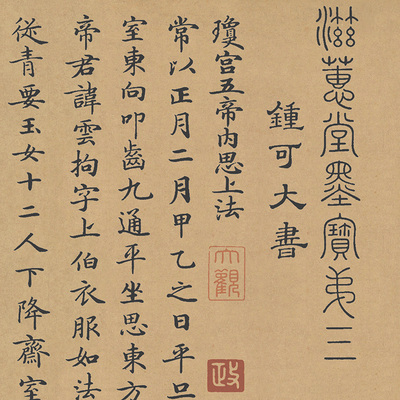 滋蕙堂墨寶弟三
鍾可大書
瓊宮五帝內思上法
常以正月二月甲乙之日平旦
室東向叩齒九通平坐思東方
帝君諱雲拘字上伯衣服如法
從青要玉女十二人下降齋室
大觀
政